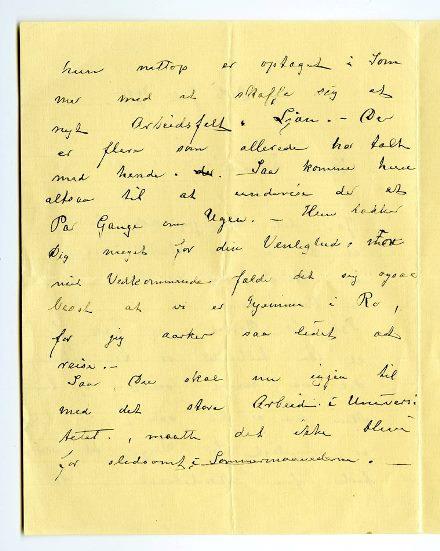 hun nettop er optaget i Som
mer med at skaffe sig et
nyt Arbeidsfelt, Ljan. – Der
er flere som allerede har talt
med hende. – Saa komme hun
altsaa til at undervise der et
Par Gange om Ugen. – Hun takker
Dig meget for din Venlighed. For
mit Vedkommende falde det sig ogsaa
bedst at vi er hjemme i Ro,
for jeg saa lidet at
reise. –
Saa, Du skal nu igjen til
med det store Arbeid i Universi
tetet., maatte det ikke blive
for slidsomt i Sommermaanederne. –